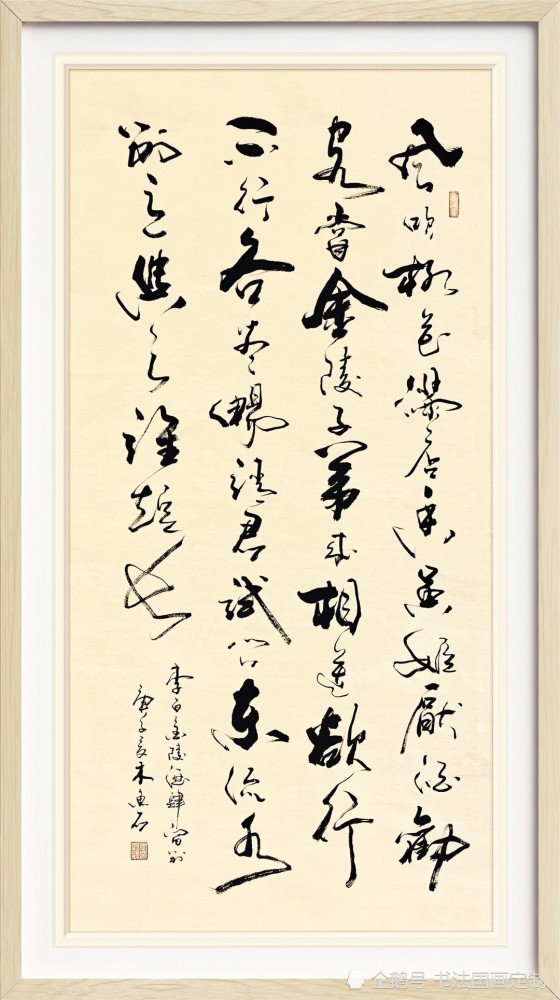 风吹柳花滿店香吴姬厭酒勸
客嘗金陵子弟来相送欲行
不行各尽觴請君試问东流水
别意與之誰短長
李白金陵酒肆留别
庚子夏木鱼石
企鹅号 书法国画定制